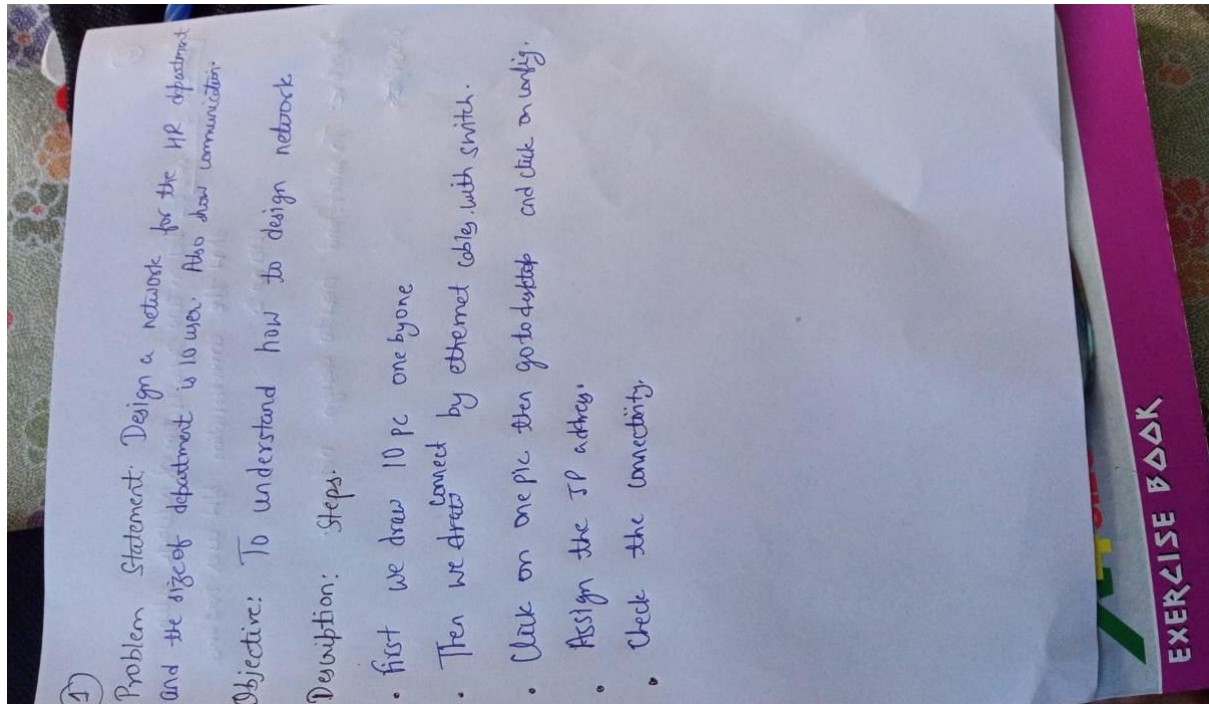 1)
Problem Statement: Design a network for the HR department
and the size of department is 10 user. Also show communication.
Objective: To understand how to design network
Description: Steps.
• first we draw 10 PC one by one
• Then we draw connect by ethernet cables with switch.
• Click on one pic then go to dysktop and click on config.
• Assign the IP address.
• Check the connectivity.
EXERCISE BOOK